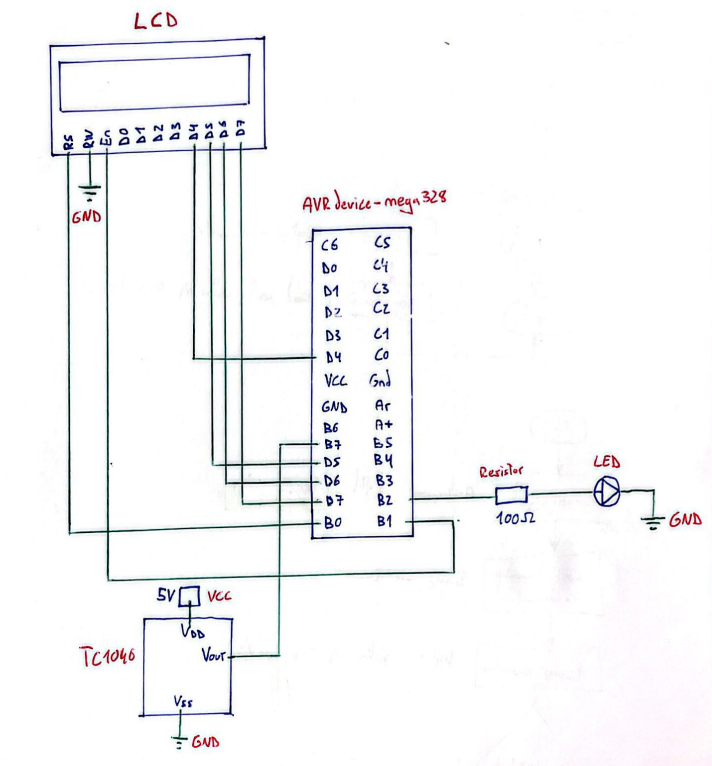 LCD
RS RW En D0 D1 D2 D3 D4 D5 D6 D7
GND
AVR device-mega328
C6 C5
D0 C4
D1 C3
D2 C2
D3 C1
D4 C0
VCC Gnd
GND Ar
B6 A+
B7 B5
D5 B4
D6 B3
D7 B2
B0 B1
Resistor
100Ω
LED
GND
5V VCC
VDD
TC1046
Vout
Vss
GND